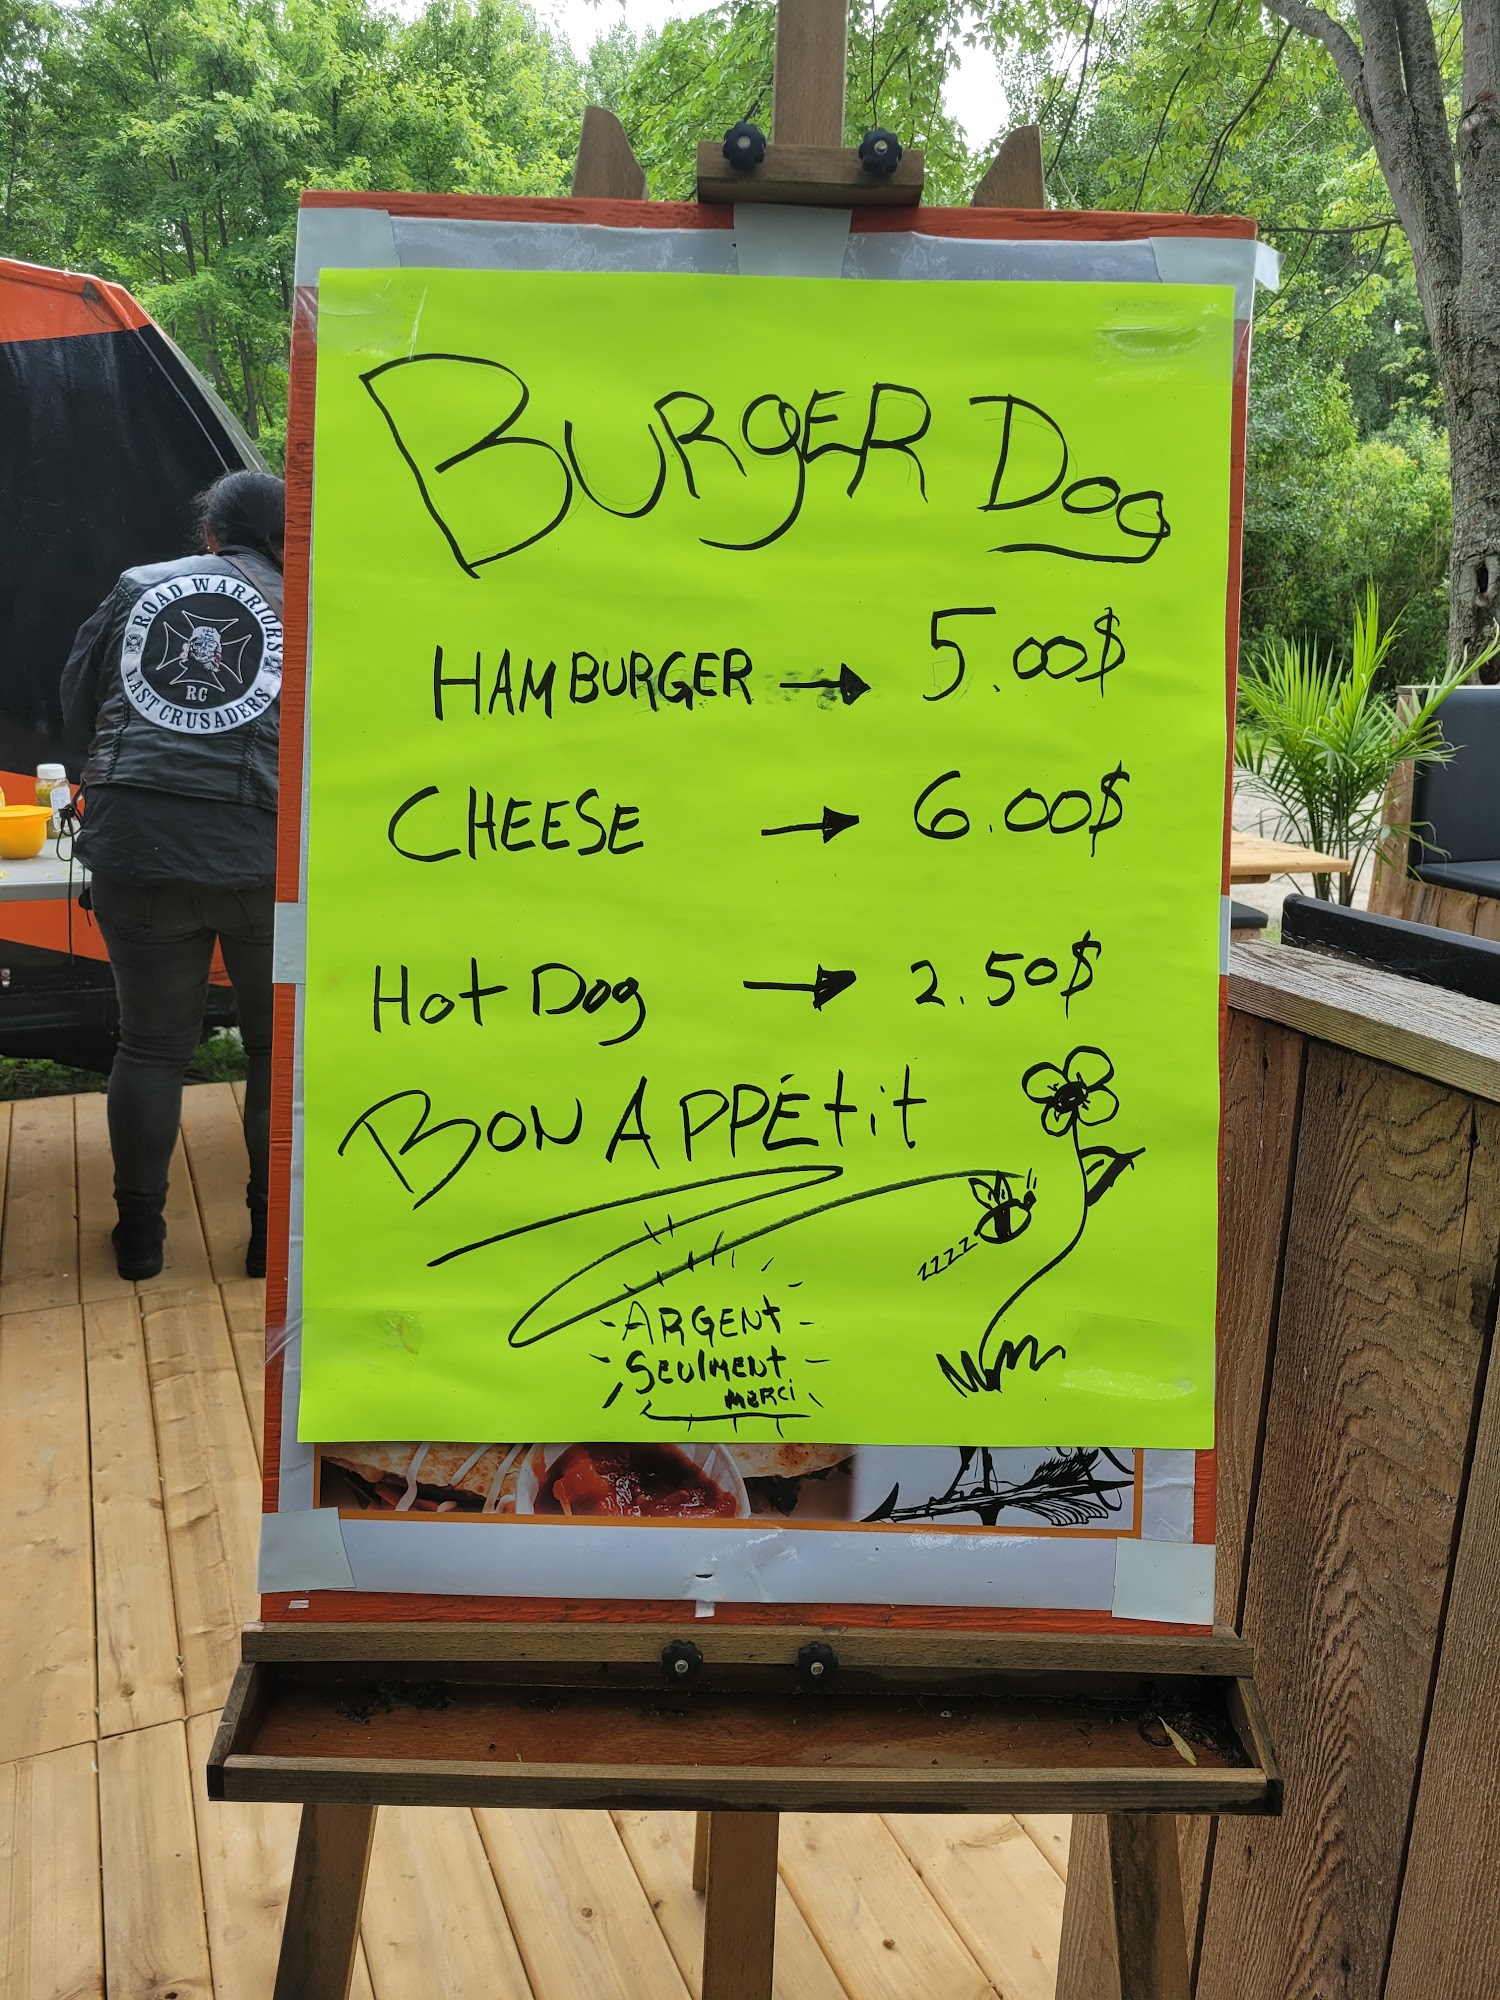 BURGER DOG
HAMBURGER → 5.00$
CHEESE → 6.00$
Hot Dog → 2.50$
BON APPÉtit
zzzz
-ARGENt-
-SEUlMENt-
MERCi
ROAD WARRIORS
RC
LAST CRUSADERS